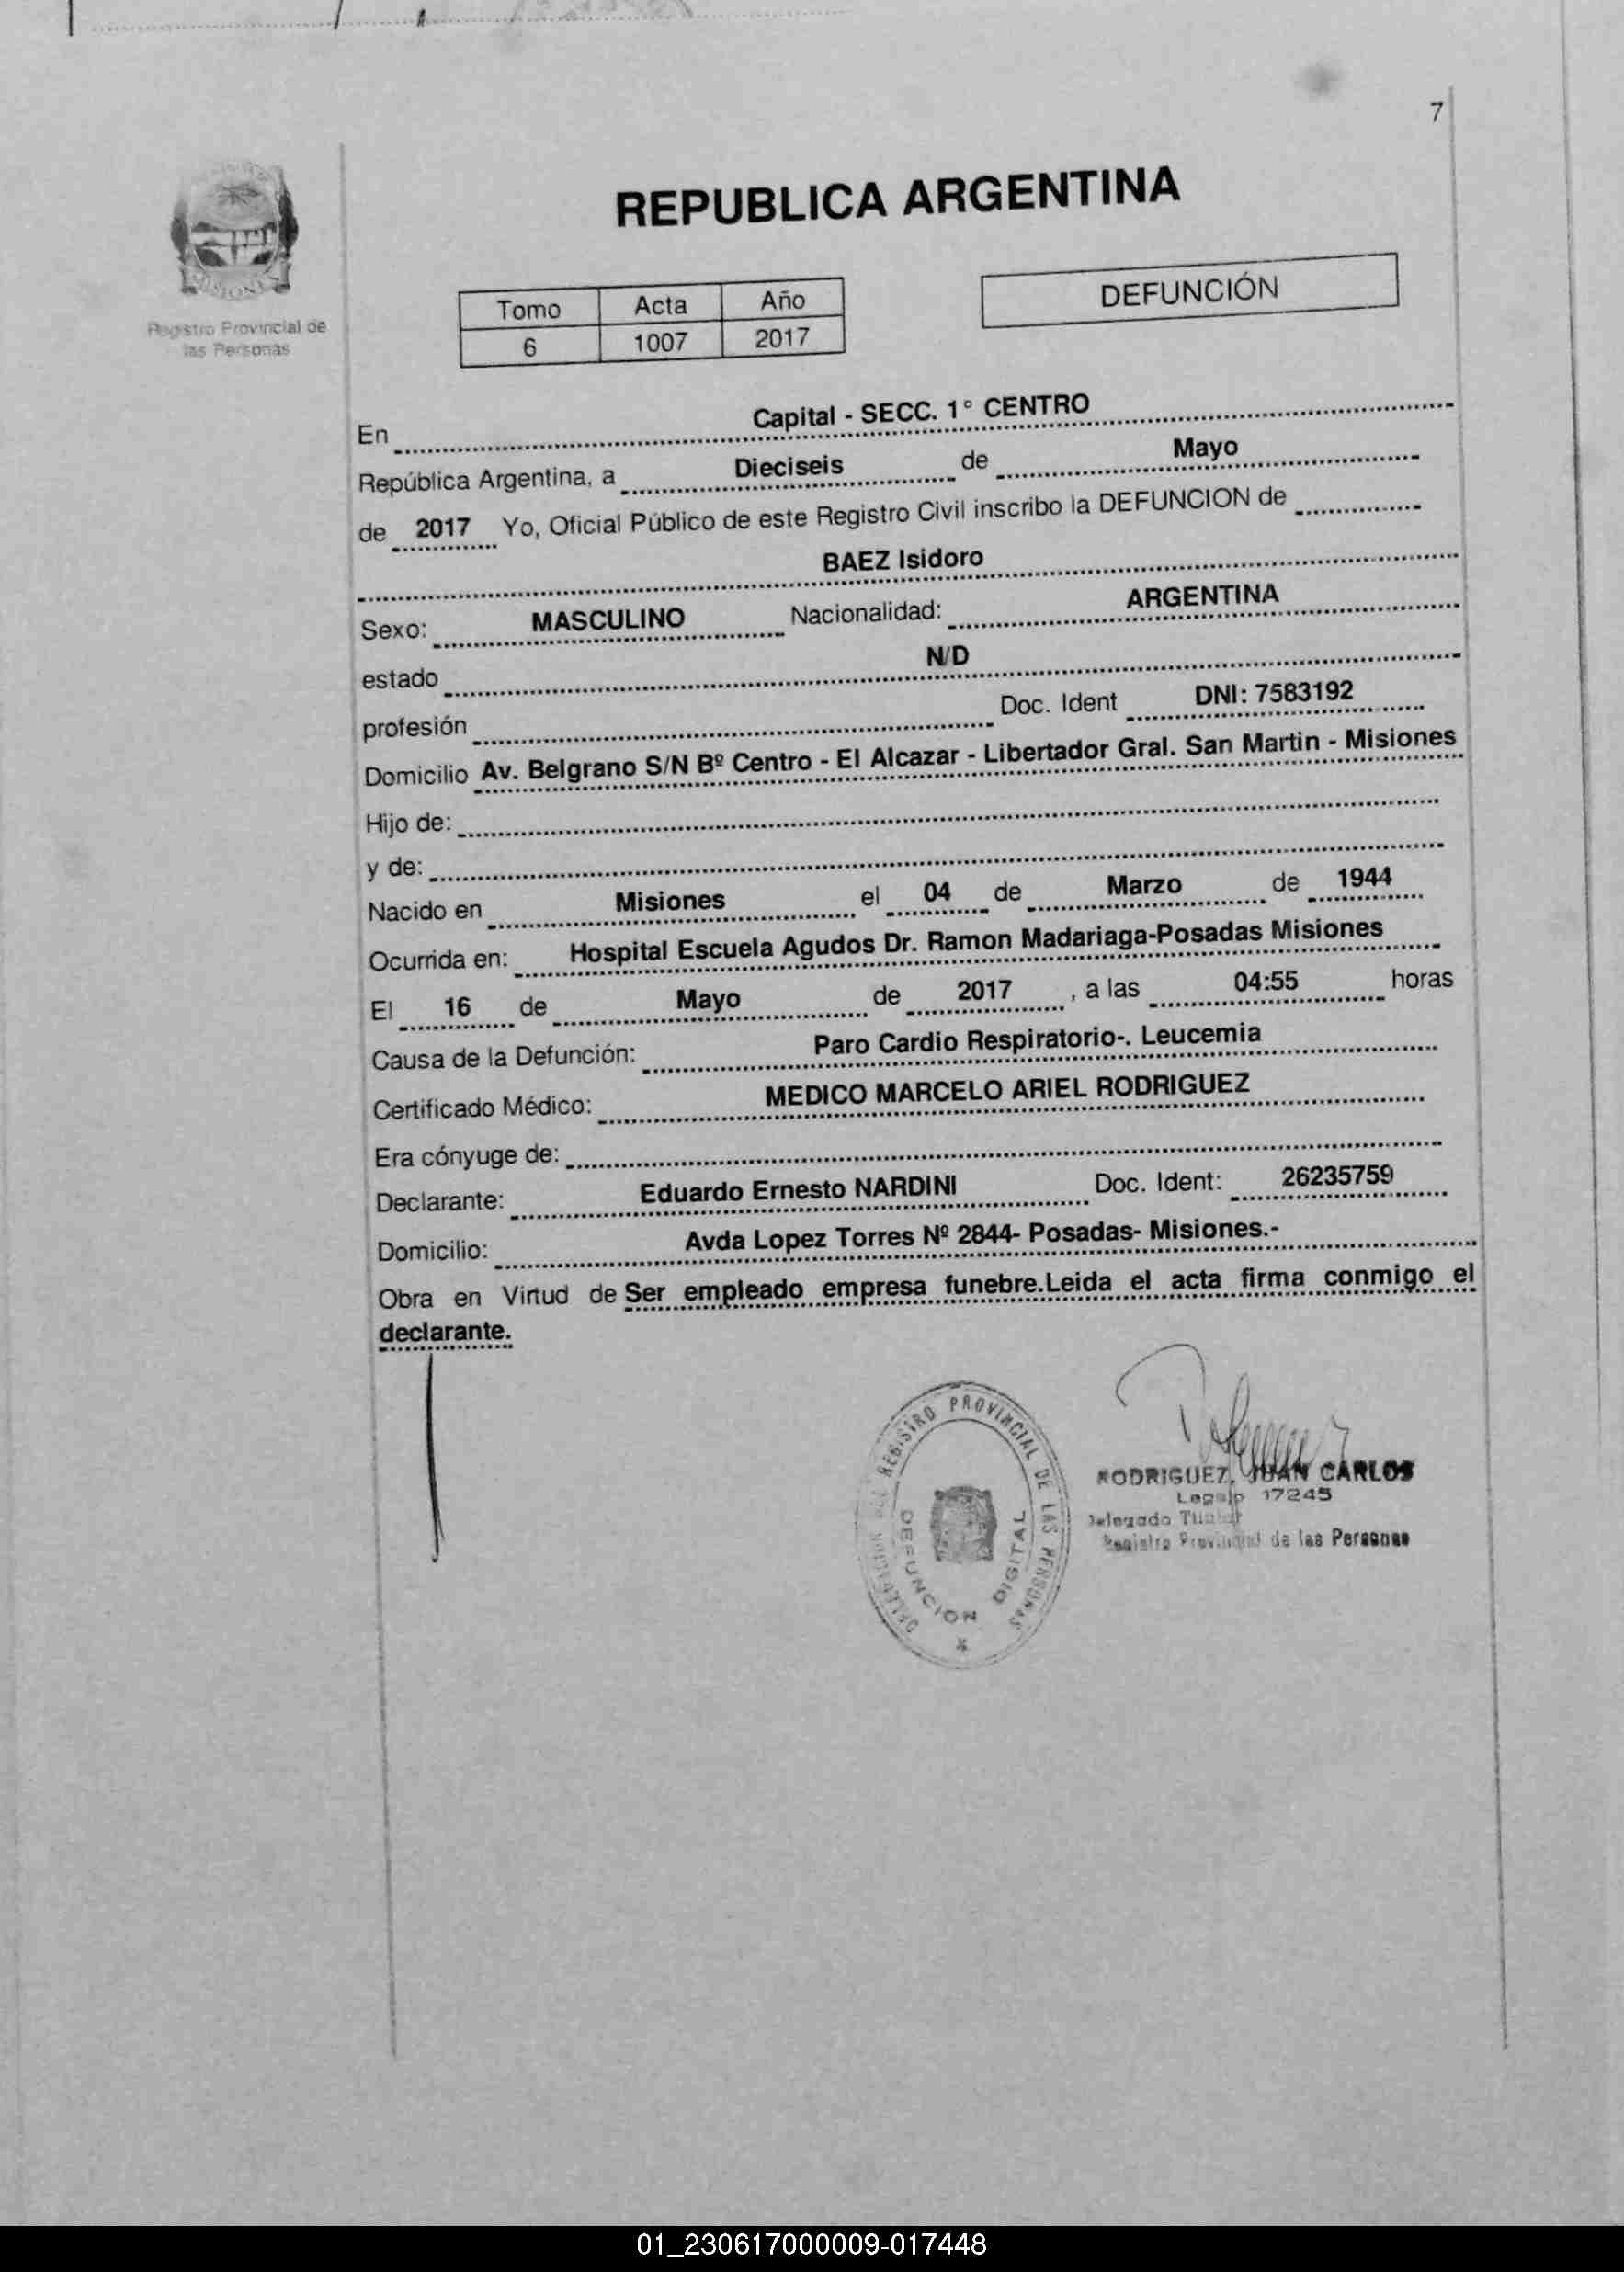 7
MISIONES
Registro Provincial de
las Personas
REPUBLICA ARGENTINA
Tomo Acta Año
6 1007 2017
DEFUNCIÓN
En Capital - SECC. 1° CENTRO
República Argentina, a Dieciseis de Mayo
de 2017 Yo, Oficial Público de este Registro Civil inscribo la DEFUNCION de
BAEZ Isidoro
Sexo: MASCULINO Nacionalidad: ARGENTINA
estado N/D
profesión Doc. Ident DNI: 7583192
Domicilio Av. Belgrano S/N Bº Centro - El Alcazar - Libertador Gral. San Martin - Misiones
Hijo de:
y de:
Nacido en Misiones el 04 de Marzo de 1944
Ocurrida en: Hospital Escuela Agudos Dr. Ramon Madariaga-Posadas Misiones
El 16 de Mayo de 2017 , a las 04:55 horas
Causa de la Defunción: Paro Cardio Respiratorio-. Leucemia
Certificado Médico: MEDICO MARCELO ARIEL RODRIGUEZ
Era cónyuge de:
Declarante: Eduardo Ernesto NARDINI Doc. Ident: 26235759
Domicilio: Avda Lopez Torres Nº 2844- Posadas- Misiones.-
Obra en Virtud de Ser empleado empresa funebre.Leida el acta firma conmigo el
declarante.
REGISTRO PROVINCIAL DE LAS PERSONAS
DEFUNCION DIGITAL
RODRIGUEZ, JUAN CARLOS
Legajo 17245
Delegado Titular
Registro Provincial de las Personas
01_230617000009-017448